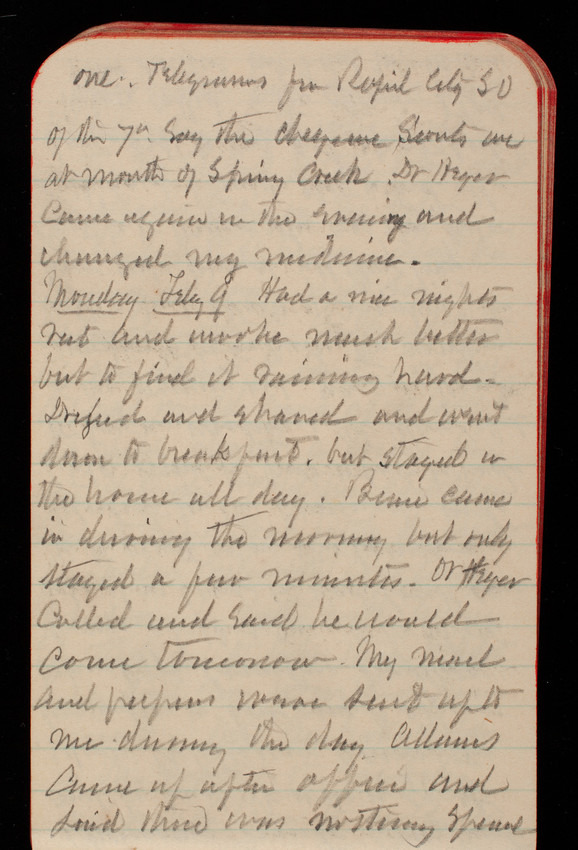 one. Telegrams fm Rapid City S D
of the 7th Say the Cheyenne Scouts are
at mouth of Spring Creek. Dr Heger
Came again in the evening and
changed my medicine.
Monday Feby 9 Had a nice nights
rest and awoke much better
but to find it raining hard.
Dressed and shaved and went
down to breakfast. but staged in
the house all day. came
in during the morning but only
stayed a few minutes. Dr Heger
Called and said he would
come tomorrow. My mail
and papers were sent up to
me during the day Adams
Came up after office and
said there was nothing special